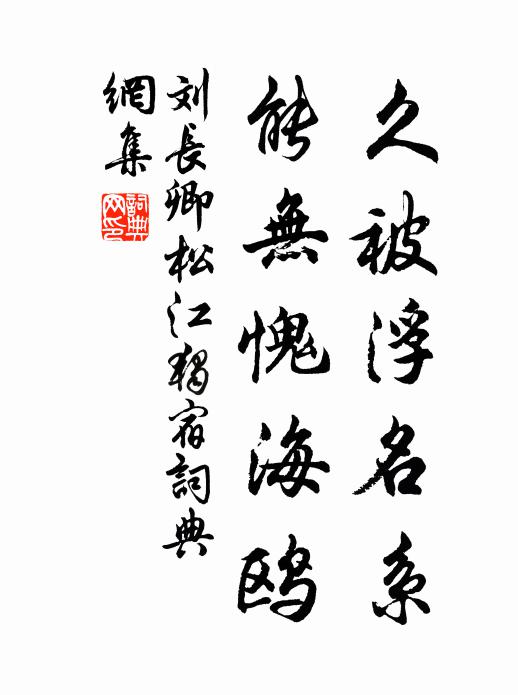 久被浮名系
能無愧海鸥
刘長卿松江獨宿詞典
網集
詞典网印